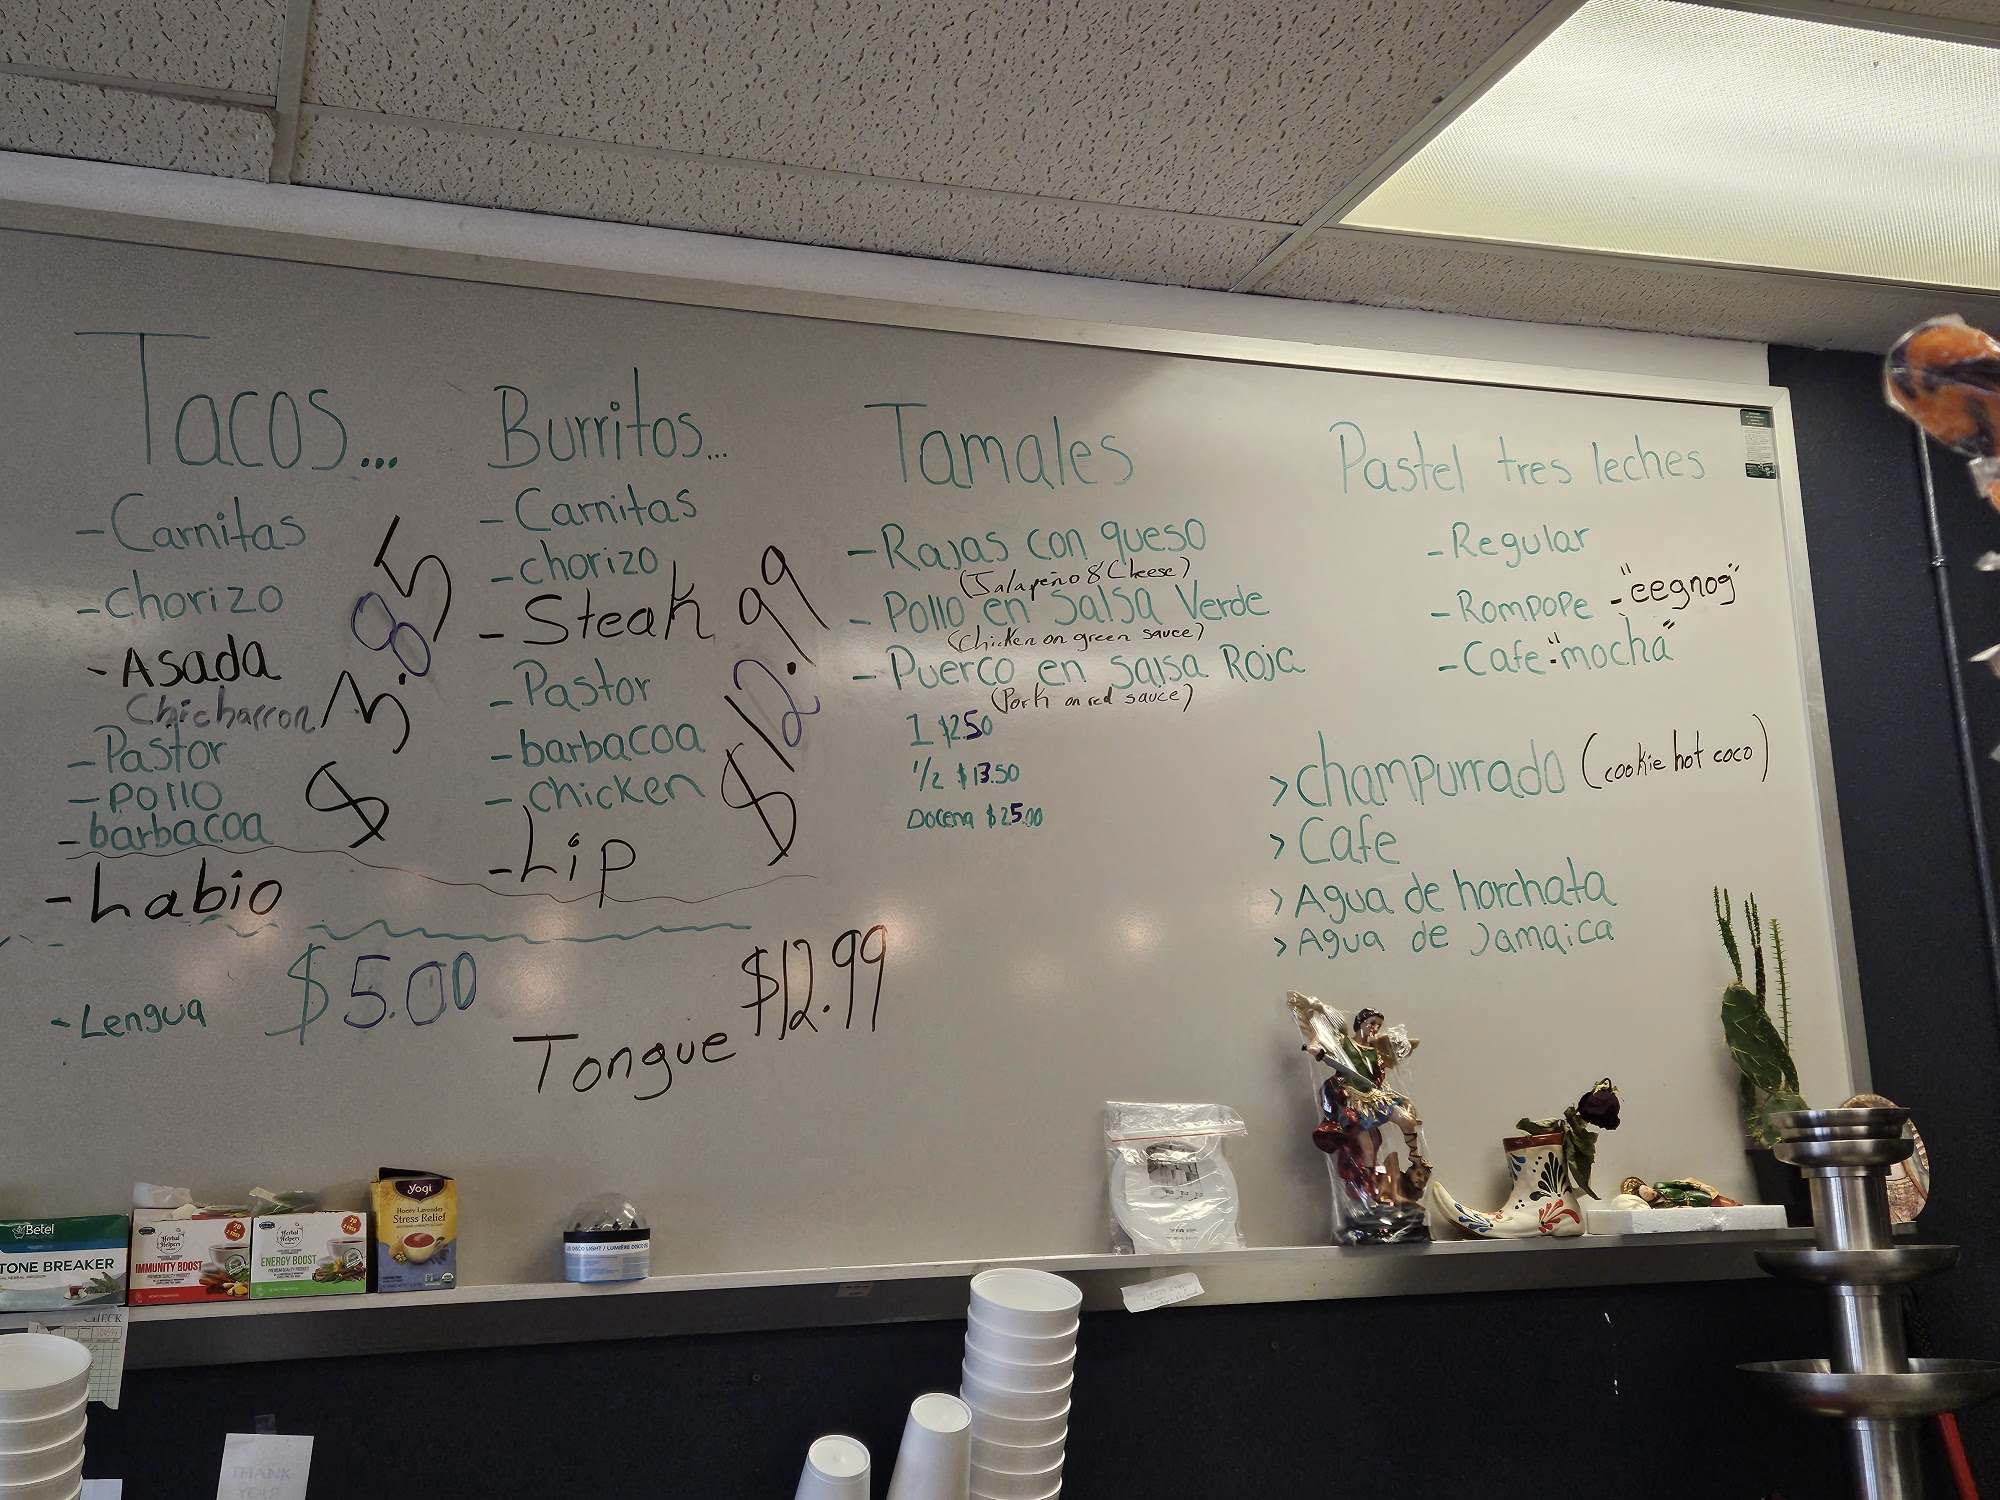 Tacos...
- Carnitas
- chorizo
- Asada
Chicharron
- Pastor
- Pollo
- barbacoa
$3.85
- Labio
- Lengua
$5.00
Burritos...
- Carnitas
- chorizo
- Steak
- Pastor
- barbacoa
- chicken
- Lip
$12.99
Tongue $12.99
Tamales
- Rajas con queso
(Jalapeño & Cheese)
- Pollo en Salsa Verde
(Chicken on green sauce)
- Puerco en Salsa Roja
(Pork on red sauce)
1 $2.50
1/2 $13.50
Docena $25.00
Pastel tres leches
- Regular
- Rompope - "eegnog"
- Cafe "mocha"
> champurrado (cookie hot coco)
> Cafe
> Agua de horchata
> Agua de Jamaica
Betel
TONE BREAKER
Herbal Helpers
IMMUNITY BOOST
Herbal Helpers
ENERGY BOOST
yogi
Honey Lavender
Stress Relief
DISCO LIGHT / LUMIÈRE DISCO
THANK
YOU!